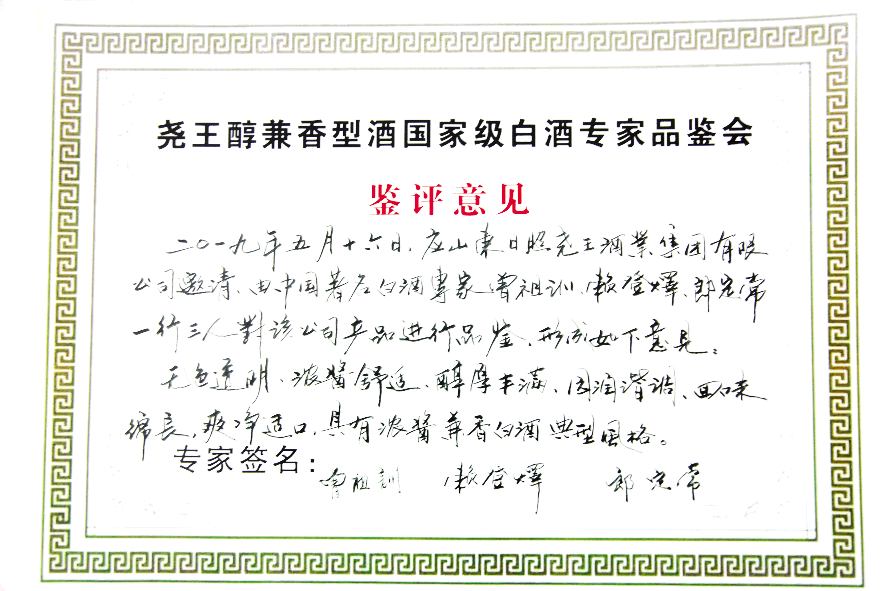 尧王醇兼香型酒国家级白酒专家品鉴会
鉴评意见
二〇一九年五月十六日，应山東日照尧王酒業集团有限
公司邀请，由中国著名白酒專家曾祖训、赖登燡、郎定常
一行三人對该公司产品进行品鉴，形成如下意見：
无色透明、浓醬舒适、醇厚丰满、圆润谐调、回味
绵長，爽净适口，具有浓醬兼香白酒典型风格。
专家签名：
曾祖訓 赖登燡 郎定常